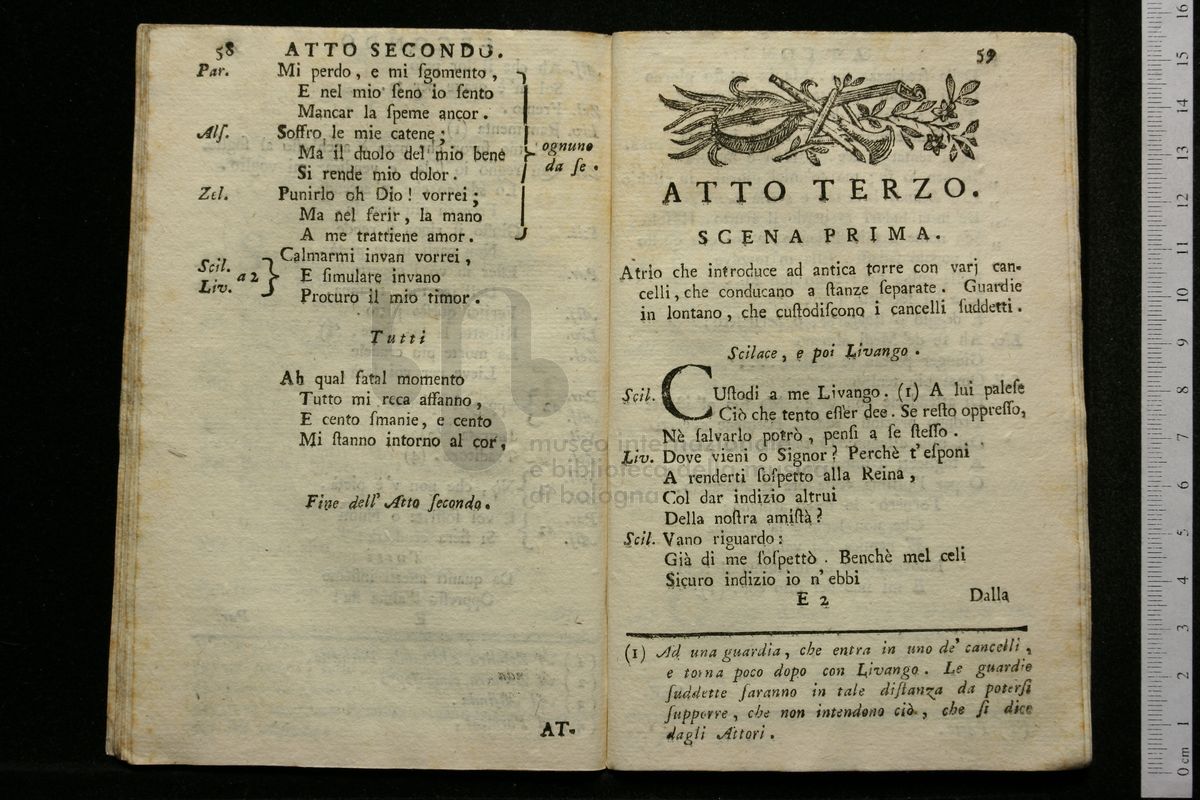 58 ATTO SECONDO.
Par. Mi perdo, e mi ſgomento,
E nel mio ſeno io ſento
Mancar la ſpeme ancor.
Alſ. Soffro le mie catene;
Ma il duolo del mio bene
Si rende mio dolor.
Zel. Punirlo oh Dio! vorrei;
Ma nel ferir, la mano
A me trattiene amor.
ognuno
da ſe.
Scil.
Liv.
a 2
Calmarmi invan vorrei,
E ſimulare invano
Procuro il mio timor.
Tutti
Ah qual fatal momento
Tutto mi reca affanno,
E cento ſmanie, e cento
Mi ſtanno intorno al cor,
Fine dell' Atto ſecondo.
AT-
59
ATTO TERZO.
SCENA PRIMA.
Atrio che introduce ad antica torre con varj can-
celli, che conducano a ſtanze ſeparate. Guardie
in lontano, che cuſtodiſcono i cancelli ſuddetti.
Scilace, e poi Livango.
Scil. CUſtodi a me Livango. (1) A lui paleſe
Ciò che tento eſſer dee. Se reſto oppreſſo,
Nè ſalvarlo potrò, penſi a ſe ſteſſo.
Liv. Dove vieni o Signor? Perchè t'eſponi
A renderti ſoſpetto alla Reina,
Col dar indizio altrui
Della noſtra amiſtà?
Scil. Vano riguardo:
Già di me ſoſpettò. Benchè mel celi
Sicuro indizio io n'ebbi
E 2 Dalla
(1) Ad una guardia, che entra in uno de' cancelli,
e torna poco dopo con Livango. Le guardie
ſuddette ſaranno in tale diſtanza da poterſi
ſupporre, che non intendono ciò, che ſi dice
dagli Attori.
museo internazionale
e biblioteca della musica
di bologna
0 cm 1 2 3 4 5 6 7 8 9 10 11 12 13 14 15 16